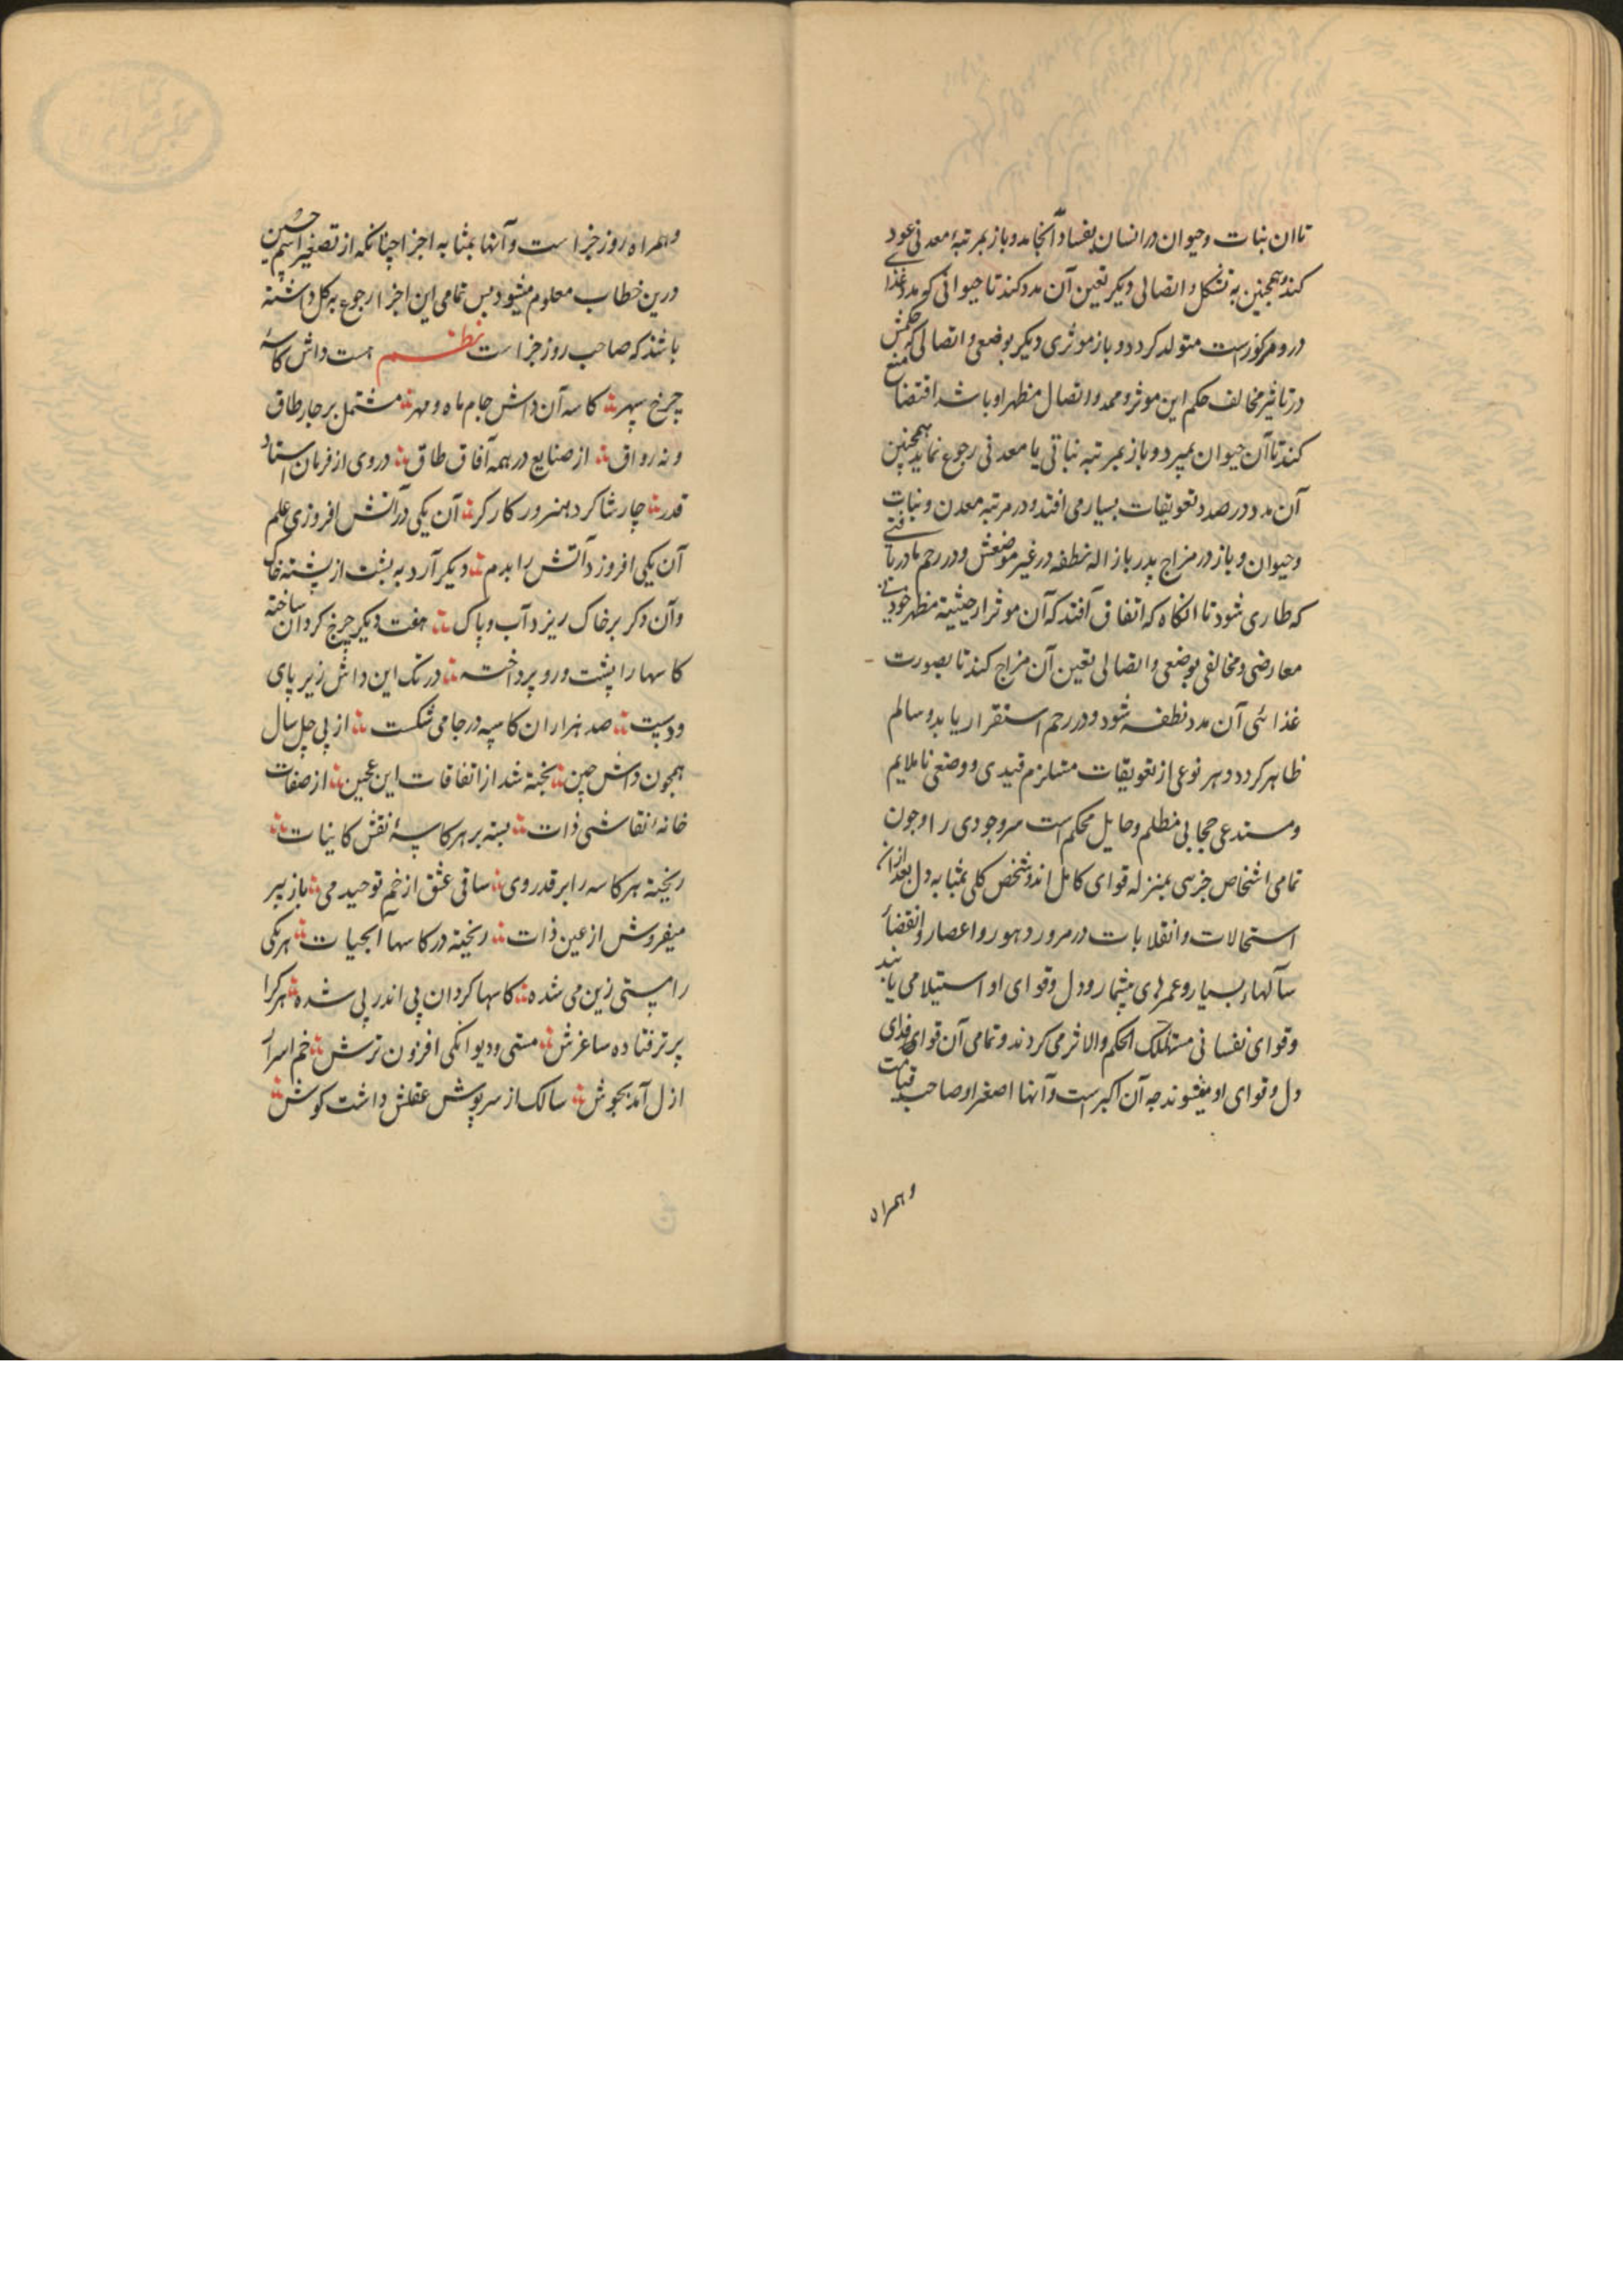 تا ان نبات و حیوان در انسان بفساد آنجامد و باز بمرتبهٔ معدنی عود
کند و همچنین به تشکل و اتصالی دیکر تعین آن مدد کند تا حیوانی که مدد غذا
در و مرکوزست متولد کردد و باز موثری دیکر بوضعی و اتصالی که حکمش
در تاثیر مخالف حکم این موثر و ممد و اتصال مظهر او باشد اقتضا منع
کند تا آن حیوان بمیرد و باز بمرتبه نباتی یا معدنی رجوع نماید همچنین
آن مدد در صدد تعویقات بسیار می افتد و در مرتبه معدن و نبات
و حیوان و باز در مزاج پدر باز اله نطفه در غیر موضعش و در رحم مادر با
که طاری شود تا انکاه که اتفاق آفتد که آن موثر از حیثیته مظهر خود بی
معارضی و مخالفی بوضعی و اتصالی تعین آن مزاج کند تا بصورت
غذائی آن مدد نطفه شود و در رحم استقرار یابد و سالم
ظاهر کردد و هر نوعی از تعویقات مستلزم قیدی و وضعی ناملایم
و مستدعی حجابی مظلم و حایل محکم است سر وجودی را و چون
تمامی اشخاص جزسی بمنزله قوای کامل اند و شخص کلی بمثابه دل بعد ازان
استحالات و انقلابات در مرور دهور و اعصار و انقضاء
سآلهاء بسیار و عمرهای بیشمار و دل و قوای او استیلا می یابند
و قوای نفسانی مستهلک الحکم و الاثر می کردند و تمامی آن قوای فدای
دل و قوای او میشوند چه آن اکبرست و آنها اصغر او صاحب قیامت
و همراه
و همراه روز جزاست و آنها بمثابه اجزا چنانکه از تصغیر اسم حسین
درین خطاب معلوم میشود بس تمامی این اجزا رجوع به کل داشته
باشد که صاحب روز جزاست نظم هست داش کاسهٔ
چرخ سپهر کاسه آن داش جام ماه و مهر مشتمل بر چار طاق
و نه رواق از صنایع در همه آفاق طاق در وی از فرمان استاد
قدر چار شاکرد هنرور کارکر آن یکی در آتش افروزی علم
آن یکی افروزد آتش را بدم دیکر آرد به پشت از پشته خاک
و آن دکر بر خاک ریزد آب و پاک هفت دیکر چرخ کردان ساخته
کاسها را پشت و رو پرداخته در تک این داش زیر پای
و دست صد هزاران کاسه در جا می شکست از پی چل سال
همچون داش چین پخته شد از اتفاقات این عجین از صفات
خانهٔ نقاشی ذات بسته بر هر کاسهٔ نقش کاینات
ریخته هر کاسه را بر قدر وی ساقی عشق از خم توحید می باز پیر
میفروش از عین ذات ریخته در کاسها آبحیات هر یکی
را مستی زین می شده کاسها کردان پی اندر پی شده هر کرا
پرتر فتاده ساغرش مستی و دیوانکی افزون ترش خم اسرار
ازل آمد بجوش سالک از سرپوش عقلش داشت کوش